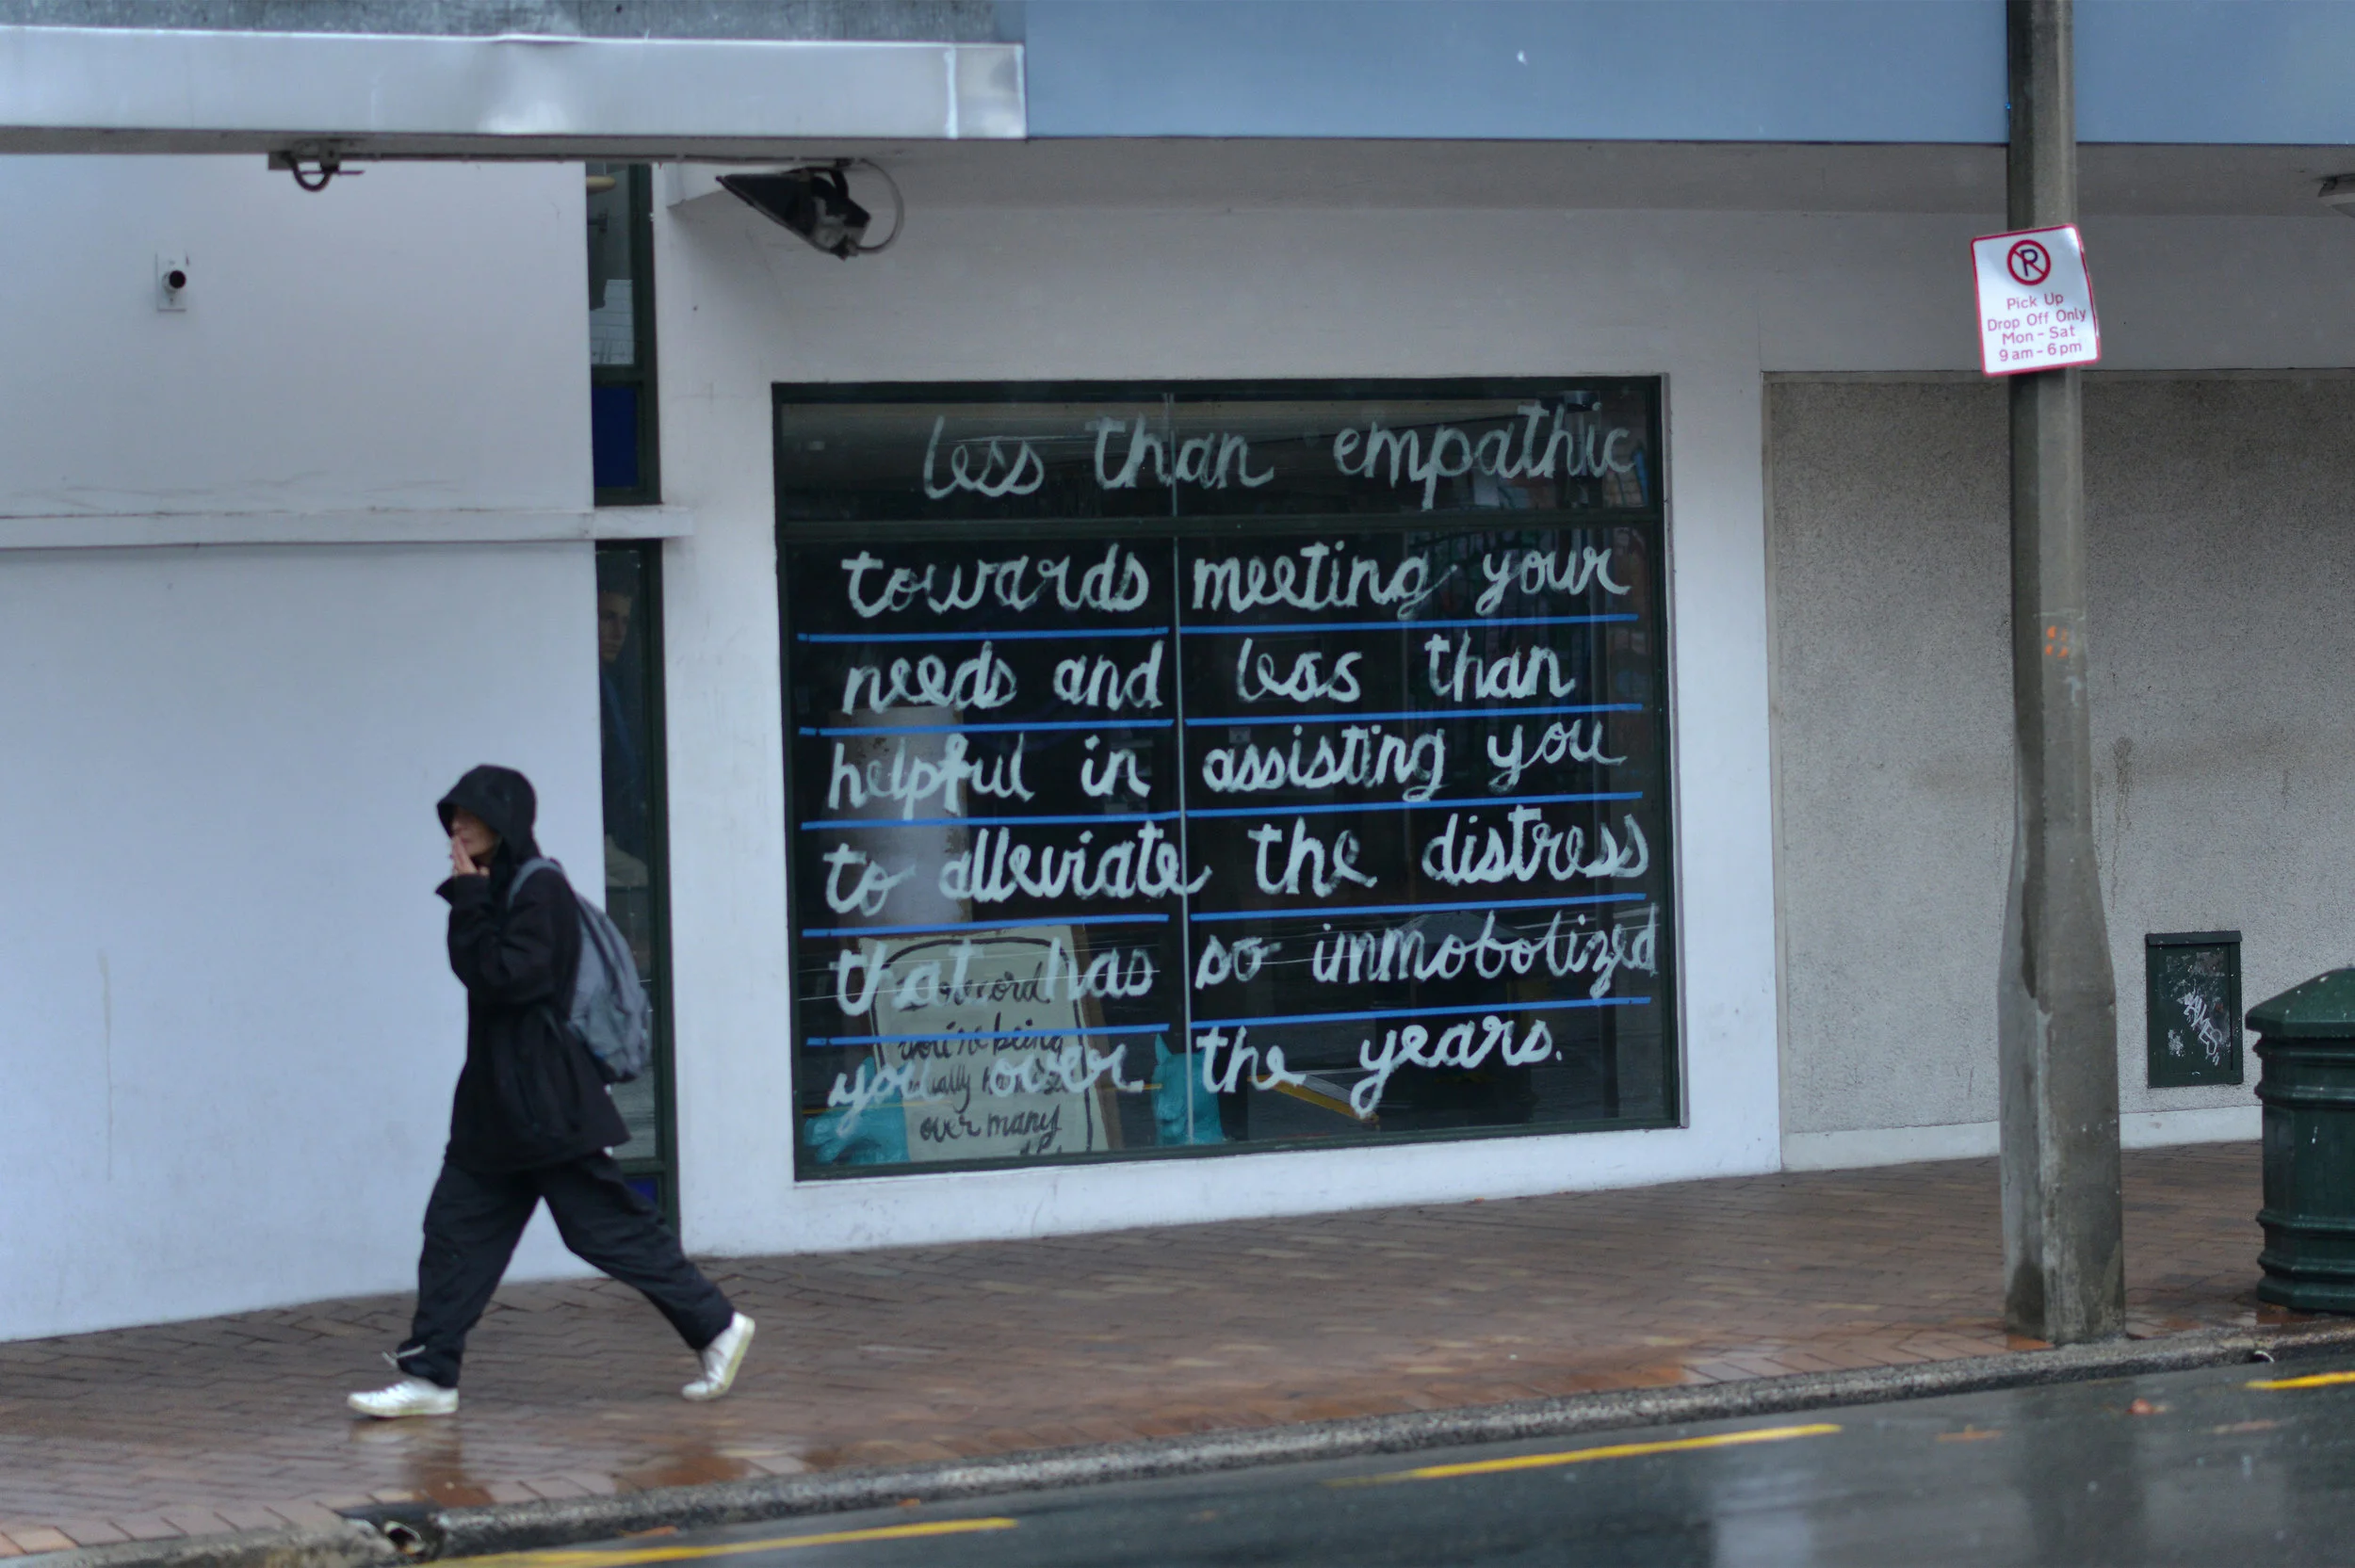 less than empathic
towards meeting your
needs and less than
helpful in assisting you
to alleviate the distress
that has so immobotized
you over the years.
you're being
over many
P
Pick Up
Drop Off Only
Mon - Sat
9 am - 6 pm